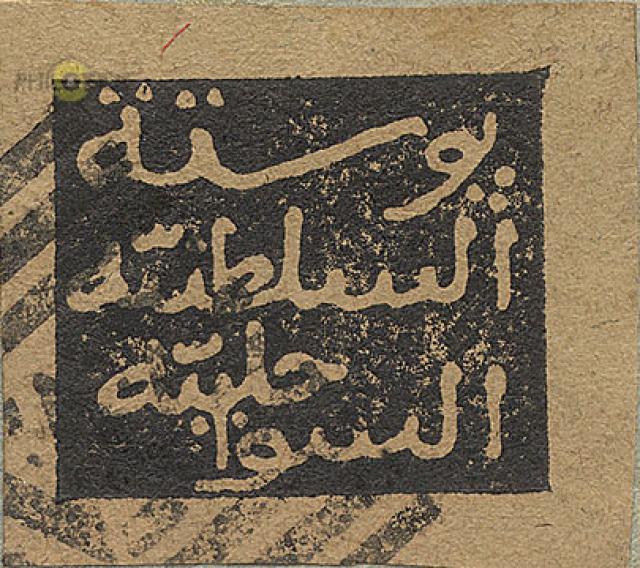 پوستة
السلطنية
السواحلية